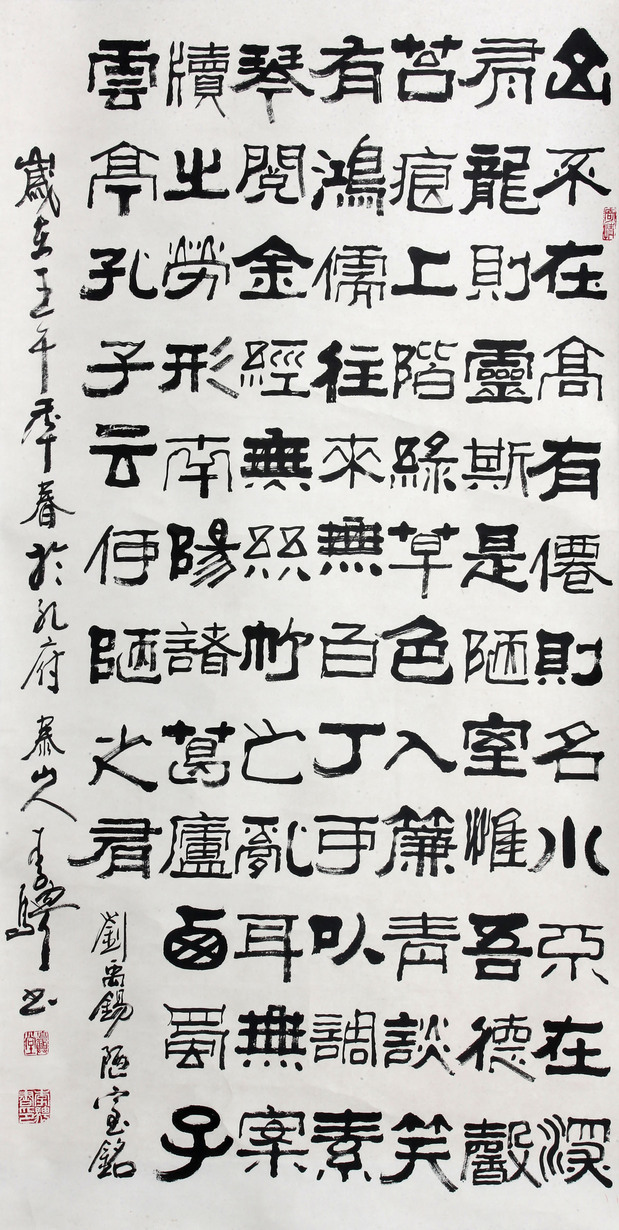 山不在高有僊則名水不在深
有龍則靈斯是陋室惟吾德馨
苔痕上階綠草色入簾青談笑
有鴻儒往來無白丁可以調素
琴閱金經無絲竹之亂耳無案
牘之勞形南陽諸葛廬西蜀子
雲亭孔子云何陋之有
劉禹錫陋室銘
歲在壬午季春於孔府泰山人書